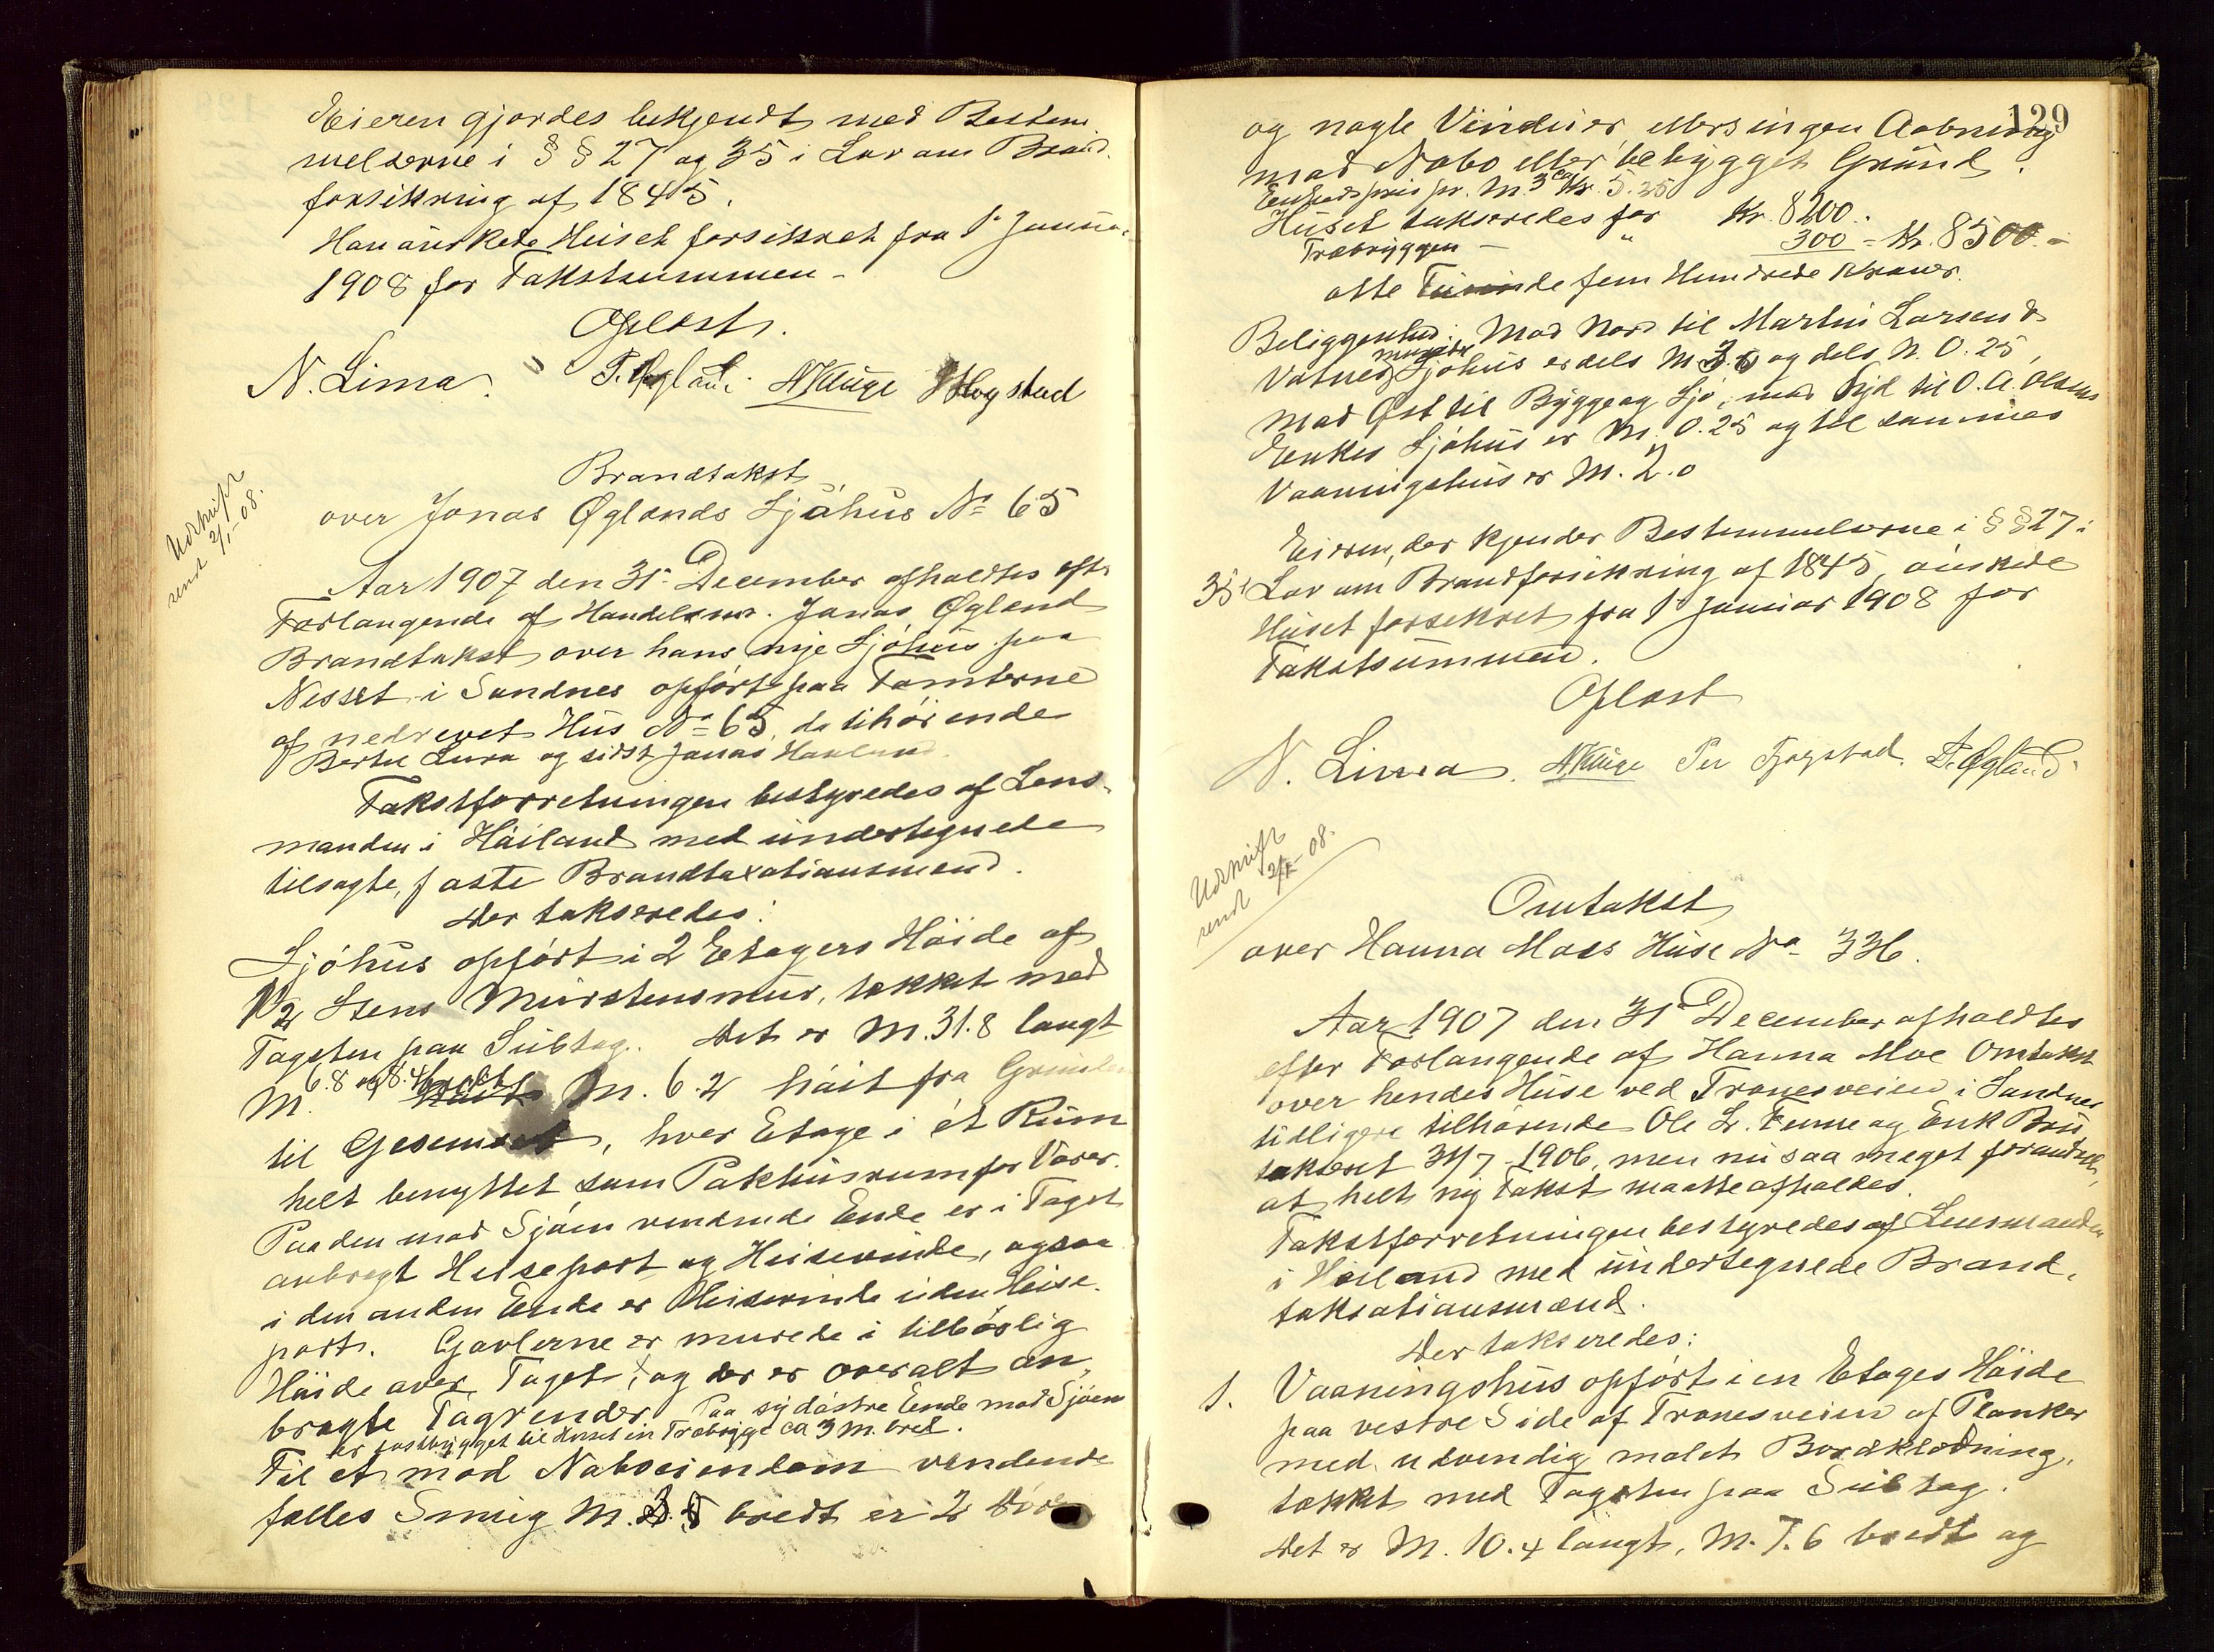 Eieren gjordes bekjendt med Bestem
melserne i § § 27 og 35 i Lov om Brand.
forsikring af 1845.
Han önskede Huset forsikret fra 1' Janua.
1908 for Takstsummen -
Oplæst.
N. Lima. T. Øgland. AKluge
Udskrift
send 2/1-08.
Brandtakst
over Jonas Øglands Sjöhus No 65
Aar 1907 den 31' December afholdtes efter
Forlangende af Handelsm. Jonas Øgland
Brandtakst over hans nye Sjöhus paa
Nesset i Sandnes opført paa Tomterne
af nedrevet Hus No 65, da tihörende
Bertel Lura og sidst Jonas Hauland.
Takstforretningen bestyredes af Lens-
manden i Höiland med undertegnede
tilsagte, faste Brandtaxationsmænd.
Der takseredes:
Sjöhus opfört i 2 Etagers Höide af
1 1/2 Stens Murstensmur, tækket med
Tagsten paa Subtag. Det er M. 31.8 langt
M. 6.8 og 8.4 bredt M. 6.2 höit fra Grunden
til Gesemset, hver Etage i ét Rum
helt benyttet som Pakhusrum for Varer.
Paa den mod Sjöen vendende Ende er i Taget
anbragt Heiseport og Heisevinde, ogsaa
i den anden Ende er Heisevinde uden Heise-
port. Gavlerne er murede i tilbörlig
Höide over Taget, og der er overalt an-
bragte Tagrender. Paa sydöstre Ende mod Sjöen
er fastbygget til Huset en Træbrygge ca 3 M. bred.
Til et mod Naboeiendom vendende
fælles Smug M. bredt er 2 Döre
129
og nogle Vinduer, ellers ingen Aabning
mod Nabo eller bebygget Grund.
Enhedspris pr. M.3 ca Kr. 5.25
Huset takseredes for Kr. 8200.
Træbryggen - " 300 = Kr. 8500.-
otte Tusinde fem Hundrede Kroner.
Beliggenhed: Mod Nord til Martin Larsen &
Vatnes murede Sjöhus er dels M 3.0 og dels M. 0.25,
mod Øst til Brygge og Sjö, mod Syd til O. A. Olsens
Enkes Sjöhus er M. 0.25 og til sammes
Vaaningshus er M. 2.0
Eieren, der kjender Bestemmelserne i § § 27 i
35 i Lov om Brandforsikring af 1845, önskede
Huset forsikret fra 1' Januar 1908 for
Takstsummen.
Oplæst
N. Lima. AKluge Per T. Øgland
Udskrift
send 2/1-08.
Omtakst
over Hanna Moes Huse No 336.
Aar 1907 den 31' December afholdtes
efter Forlangende af Hanna Moe Omtakst
over hendes Huse ved Tronesveien i Sandnes
tidligere tilhörende Ole L. Tunne og Enk Bru
takseret 31/7-1906, men nu saa meget forandret,
at helt ny Takst maatte afholdes.
Takstforretningen bestyredes af Lensmanden
i Höiland med undertegnede Brand-
taksationsmænd.
Der takseredes:
1. Vaaningshus opfört i en Etages Höide
paa vestre Side af Tronesveien af Planker
med udvendig malet Bordklædning,
tækket med Tagsten paa Subtag.
Det er M. 10.4 langt, M. 7.6 bredt og